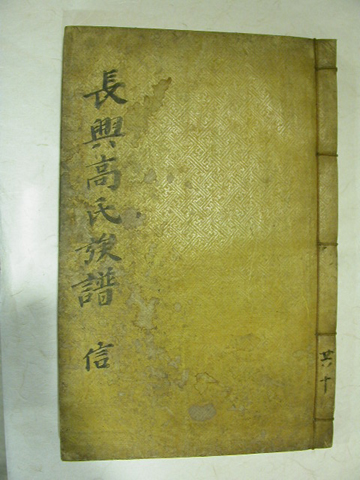 長興高氏族譜 信
共十